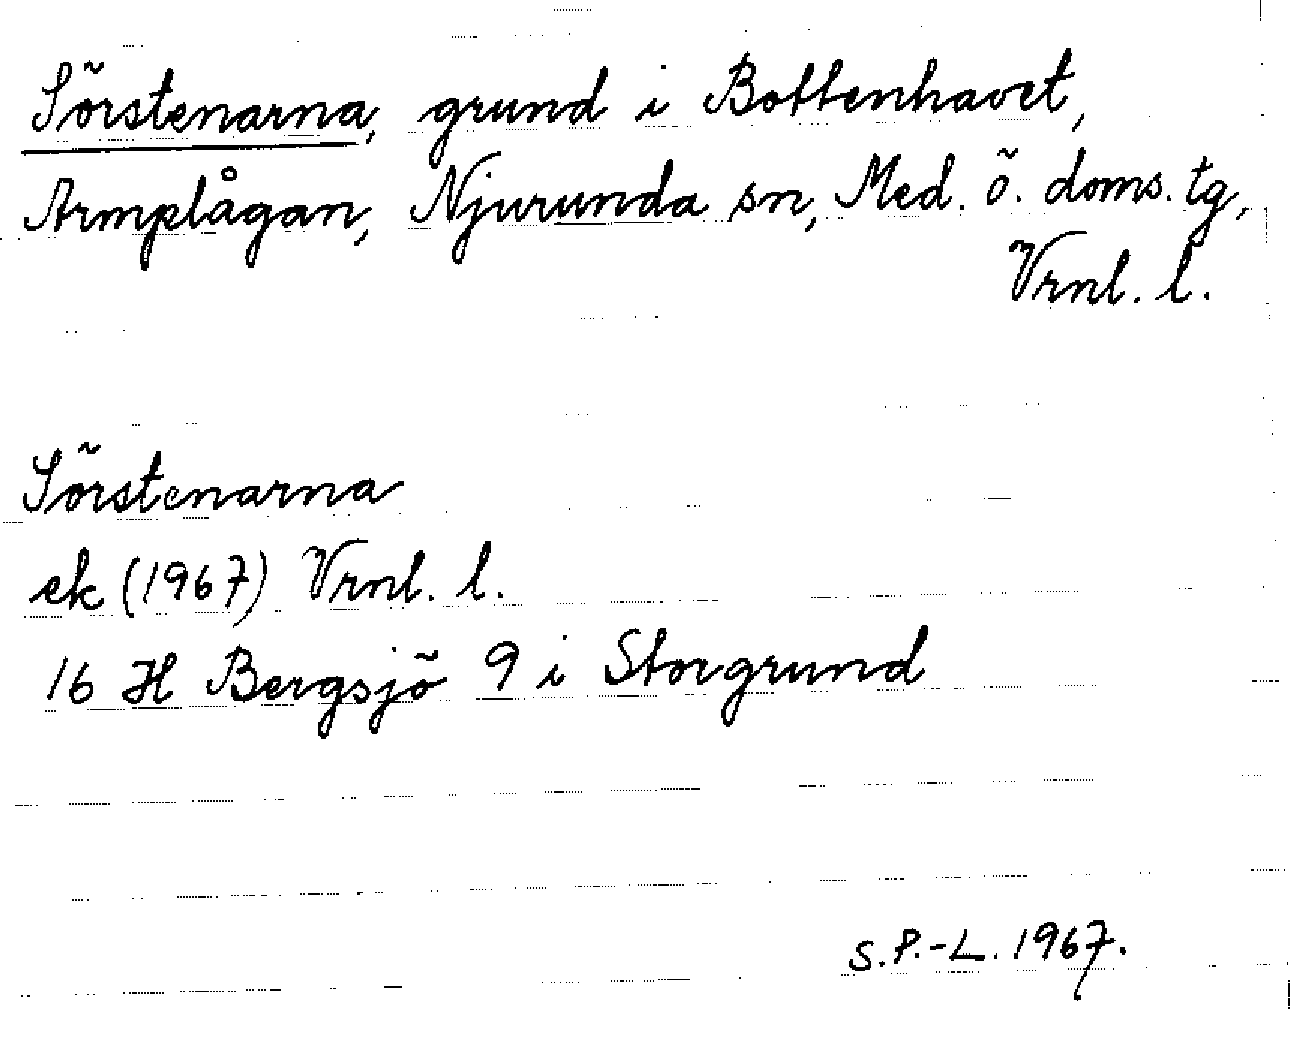 Sörstenarna, grund i Bottenhavet,
Armplågan, Njurunda sn, Med. ö. doms. tg,
Vrnl. l.
Sörstenarna
ek (1967) Vrnl. l.
16 H Bergsjö 9 i Storgrund
S.P.-L. 1967.